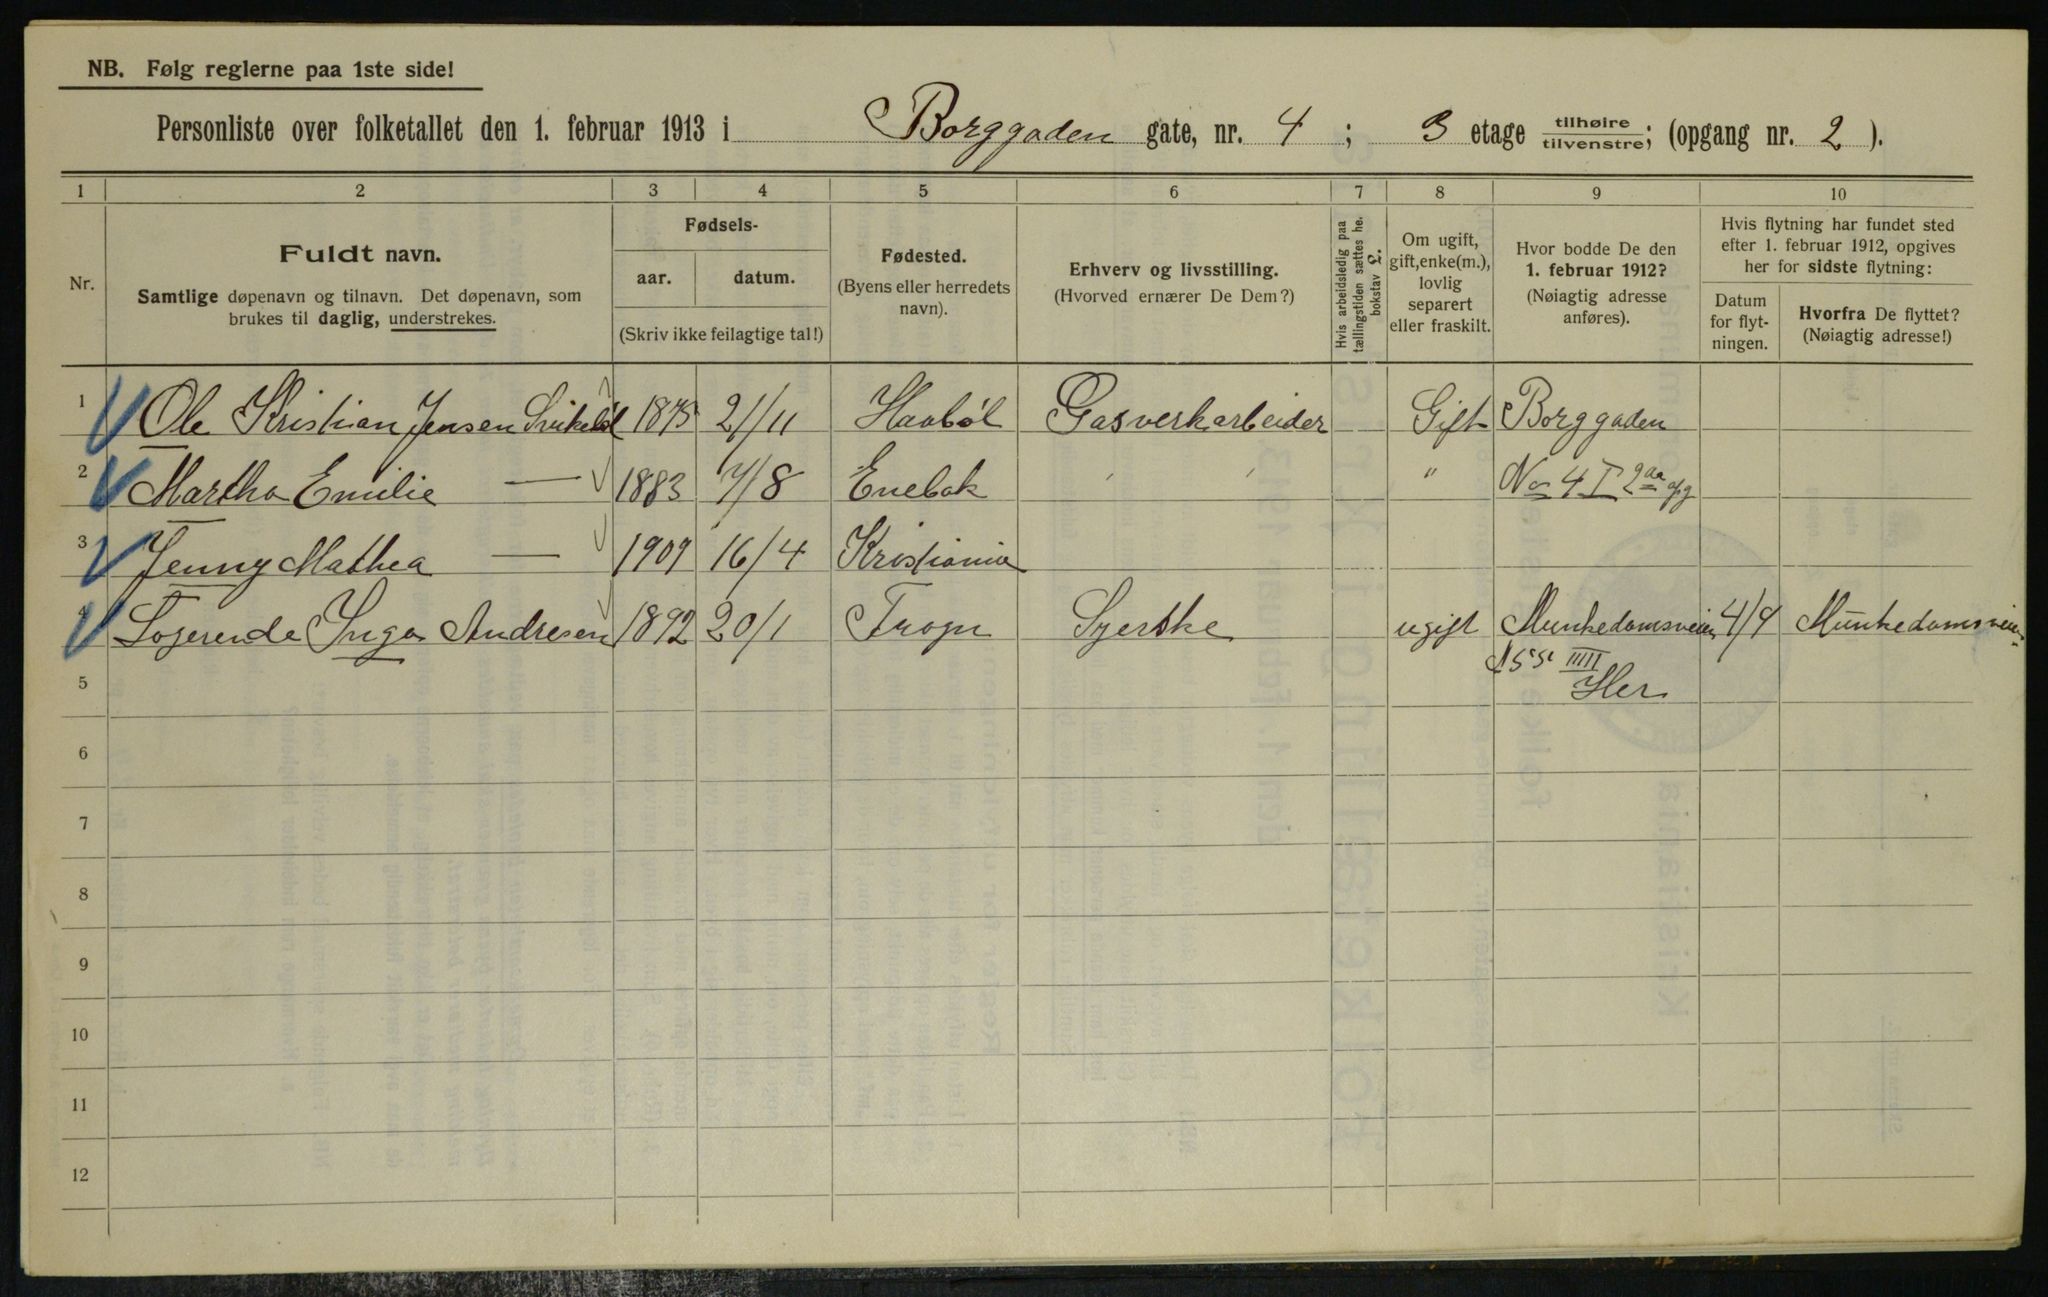 NB. Følg reglerne paa 1ste side!
Personliste over folketallet den 1. februar 1913 i Borggaden gate, nr. 4 ; 3 etage tilhøire/tilvenstre; (opgang nr. 2 ).
1 2 3 4 5 6 7 8 9 10
Nr.
Fuldt navn.
Samtlige døpenavn og tilnavn. Det døpenavn, som
brukes til daglig, understrekes.
Fødsels-
aar. datum.
(Skriv ikke feilagtige tal!)
Fødested.
(Byens eller herredets
navn).
Erhverv og livsstilling.
(Hvorved ernærer De Dem?)
Hvis arbeidsledig paa
tællingstiden sættes he.
bokstav L.
Om ugift,
gift, enke(m.),
lovlig
separert
eller fraskilt.
Hvor bodde De den
1. februar 1912?
(Nøiagtig adresse
anføres).
Hvis flytning har fundet sted
efter 1. februar 1912, opgives
her for sidste flytning:
Datum
for flyt-
ningen.
Hvorfra De flyttet?
(Nøiagtig adresse!)
1 Ole Kristian Jensen 1875 21/11 Haabøl Gasverkarbeider Gift Borggaden
2 Martha Emilie — 1883 7/8 Enebak " No 4 I 2den opg
3 Jenny Mathea — 1909 16/4 Kristiania
4 Logerende Inga Andresen 1892 20/1 Frogn Syerske ugift Munkedamsveien 4/9 Munkedamsveien
5 Her
6
7
8
9
10
11
12